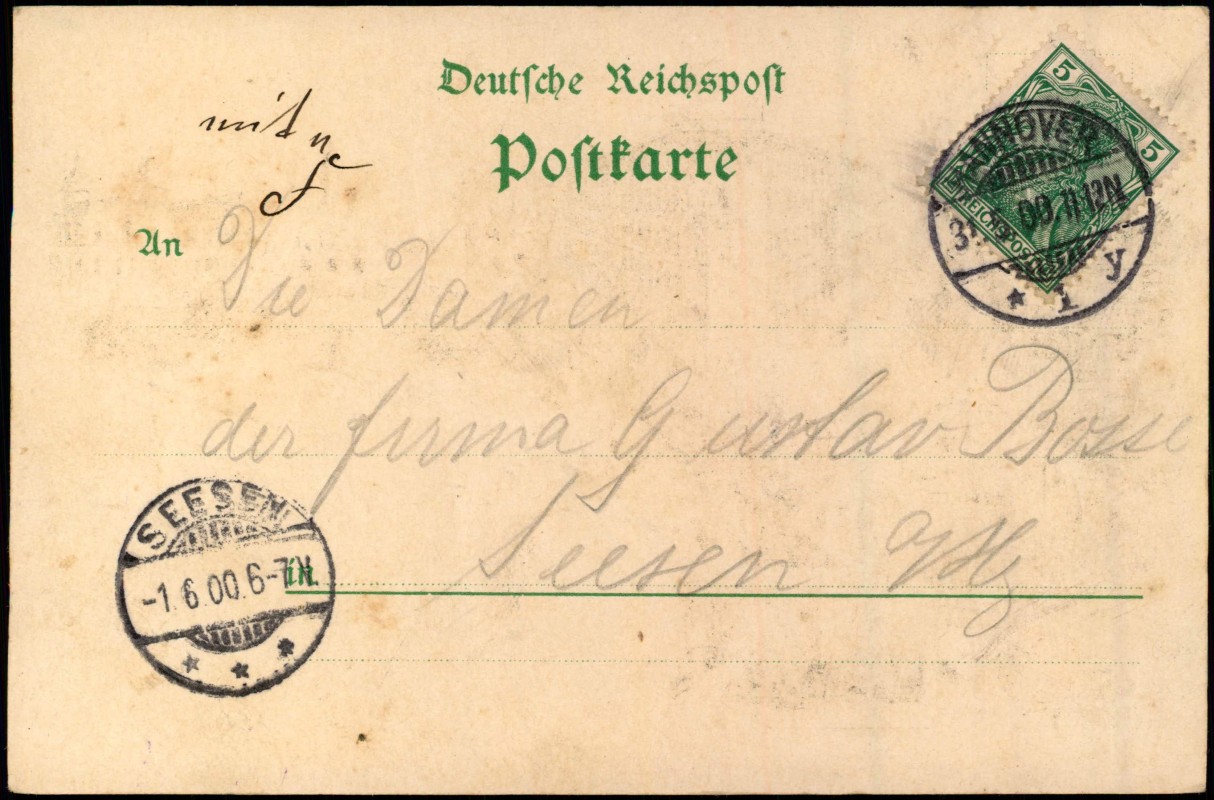 Deutsche Reichspost
Postkarte
mit
An Die Damen
der Firma Gustav Bosse
in Seesen a/Hz
5
5
REICHSPOST
HANNOVER
00.11-12N
* 1 y
SEESEN
-1.6.00.6-7N
* * *